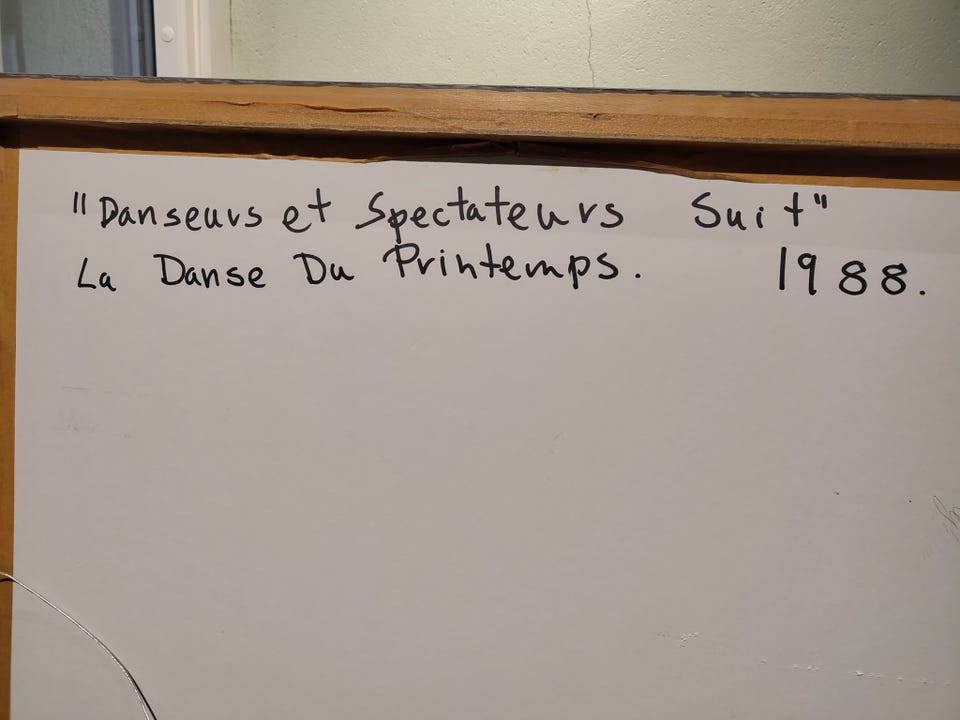 "Danseurs et Spectateurs Suit"
La Danse Du Printemps. 1988.